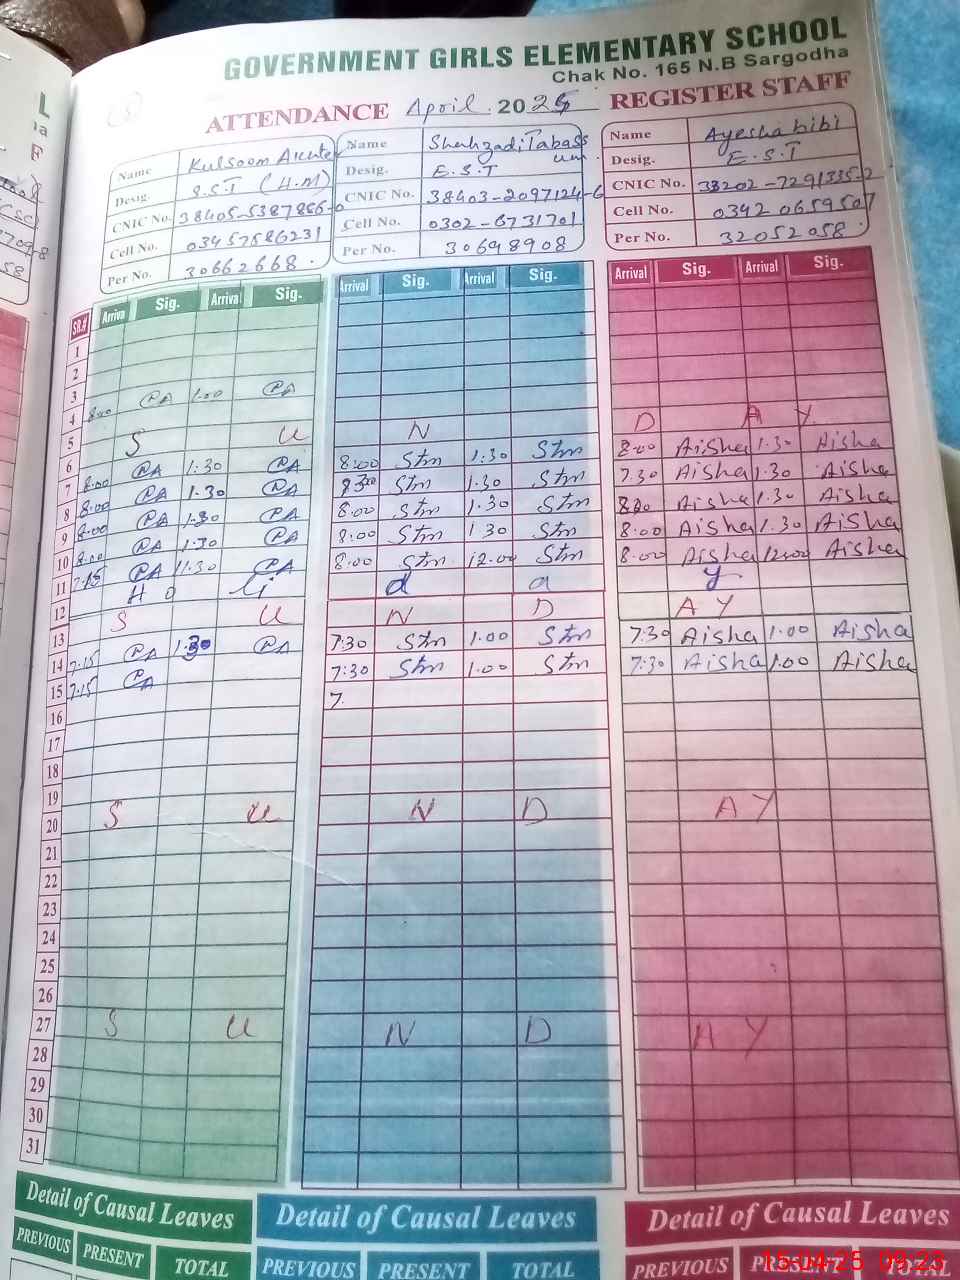 GOVERNMENT GIRLS ELEMENTARY SCHOOL
Chak No. 165 N.B Sargodha
ATTENDANCE April 2025 REGISTER STAFF
Name Kulsoom Akhter
Desig. S.S.T (H.M)
CNIC No. 38405-5387866-0
Cell No. 03457586231
Per No. 30662668.
Name Shahzadi Tabass
um.
Desig. E.S.T
CNIC No. 38403-2097124-6
Cell No. 0302-6731701
Per No. 30698908
Name Ayesha bibi
Desig. E.S.T
CNIC No. 38202-7291335-2
Cell No. 0342 0659507
Per No. 32052058.
SR.# Arriva Sig. Arrival Sig. Arrival Sig. Arrival Sig. Arrival Sig. Arrival Sig.
1
2
3
4 8:00 PA 1:00 PA
5 S U N D A Y
6 8:00 PA 1:30 PA 8:00 Stm 1:30 Stm 8:00 Aisha 1:30 Aisha
7 8:00 PA 1:30 PA Stm 1:30 Stm 7:30 Aisha 1:30 Aisha
8 8:00 PA 1:30 PA 8:00 Stm 1:30 Stm Aisha 1:30 Aisha
9 8:00 PA 1:30 PA 8:00 Stm 1 30 Stm 8:00 Aisha 1:30 Aisha
10 7:15 PA 11:30 PA 8:00 Stm 12.00 Stm 8:00 Aisha 12:00 Aisha
11 H o li d a y
12 S U N D A Y
13 7:15 PA 1:30 PA 7:30 Stm 1.00 Stm 7:30 Aisha 1:00 Aisha
14 7:15 PA 7:30 Stm 1:00 Stm 7:30 Aisha 1:00 Aisha
15 7.
16
17
18
19 S U N D A Y
20
21
22
23
24
25
26
27 S U N D A Y
28
29
30
31
Detail of Causal Leaves Detail of Causal Leaves Detail of Causal Leaves
PREVIOUS PRESENT TOTAL PREVIOUS PRESENT TOTAL PREVIOUS PRESENT TOTAL
15-04-25 09:23